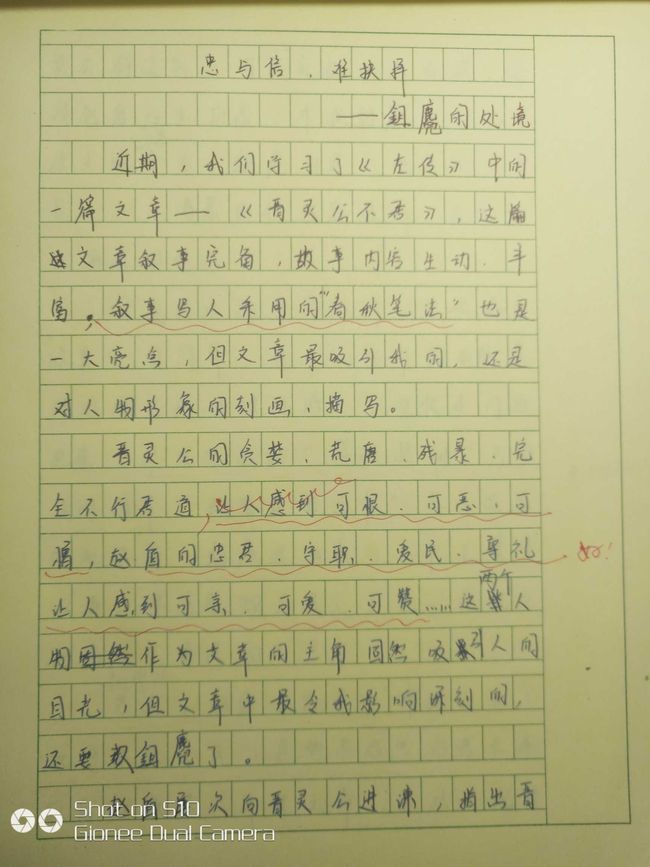 忠与信，难抉择
——鉏麑的处境
近期，我们学习了《左传》中的
一篇文章——《晋灵公不君》，这篇
文章叙事完备，故事内容生动、丰
富，叙事写人采用的“春秋笔法”也是
一大亮点，但文章最吸引我的，还是
对人物形象的刻画、描写。
晋灵公的贪婪、荒唐、残暴、完
全不行君道，让人感到可恨、可恶、可
，赵盾的忠君、守职、爱民、尊礼
好！
让人感到可亲、可爱、可赞……这两个人
物作为文章的主角固然吸引人的
目光，但文章中最令我影响深刻的，
还要数鉏麑了。
赵盾次向晋灵公进谏，指出晋
Shot on S10
Gionee Dual Camera